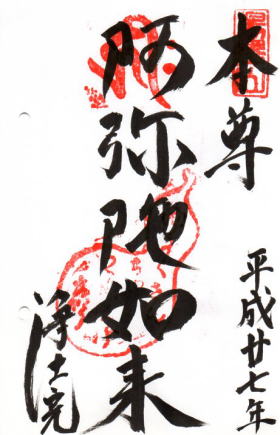 本尊
平成廿七年
阿弥陀如来
浄土院